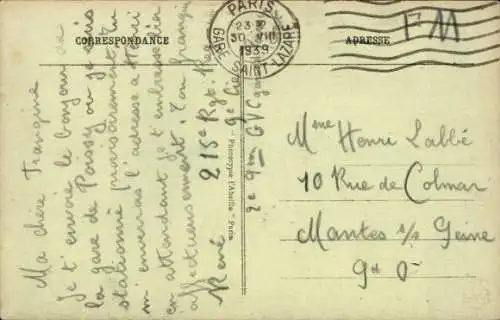 CORRESPONDANCE
ADRESSE
PARIS
23 H
30 VIII
1939
GARE SAINT-LAZARE
FM
Ma chère Frangine
Je t'envoie le bonjour de
la gare de Poissy ou je suis
stationné provisoirement. Tu
m'enverras l'adresse à Henri
en attendant je t'embrasse bien
affectueusement. Ton frangin
René
215e Rgt.
9e Cie
GVC
Phototypie l'Abeille - Paris
Mme Henri Labbé
10 Rue de Colmar
Mantes s/s Seine